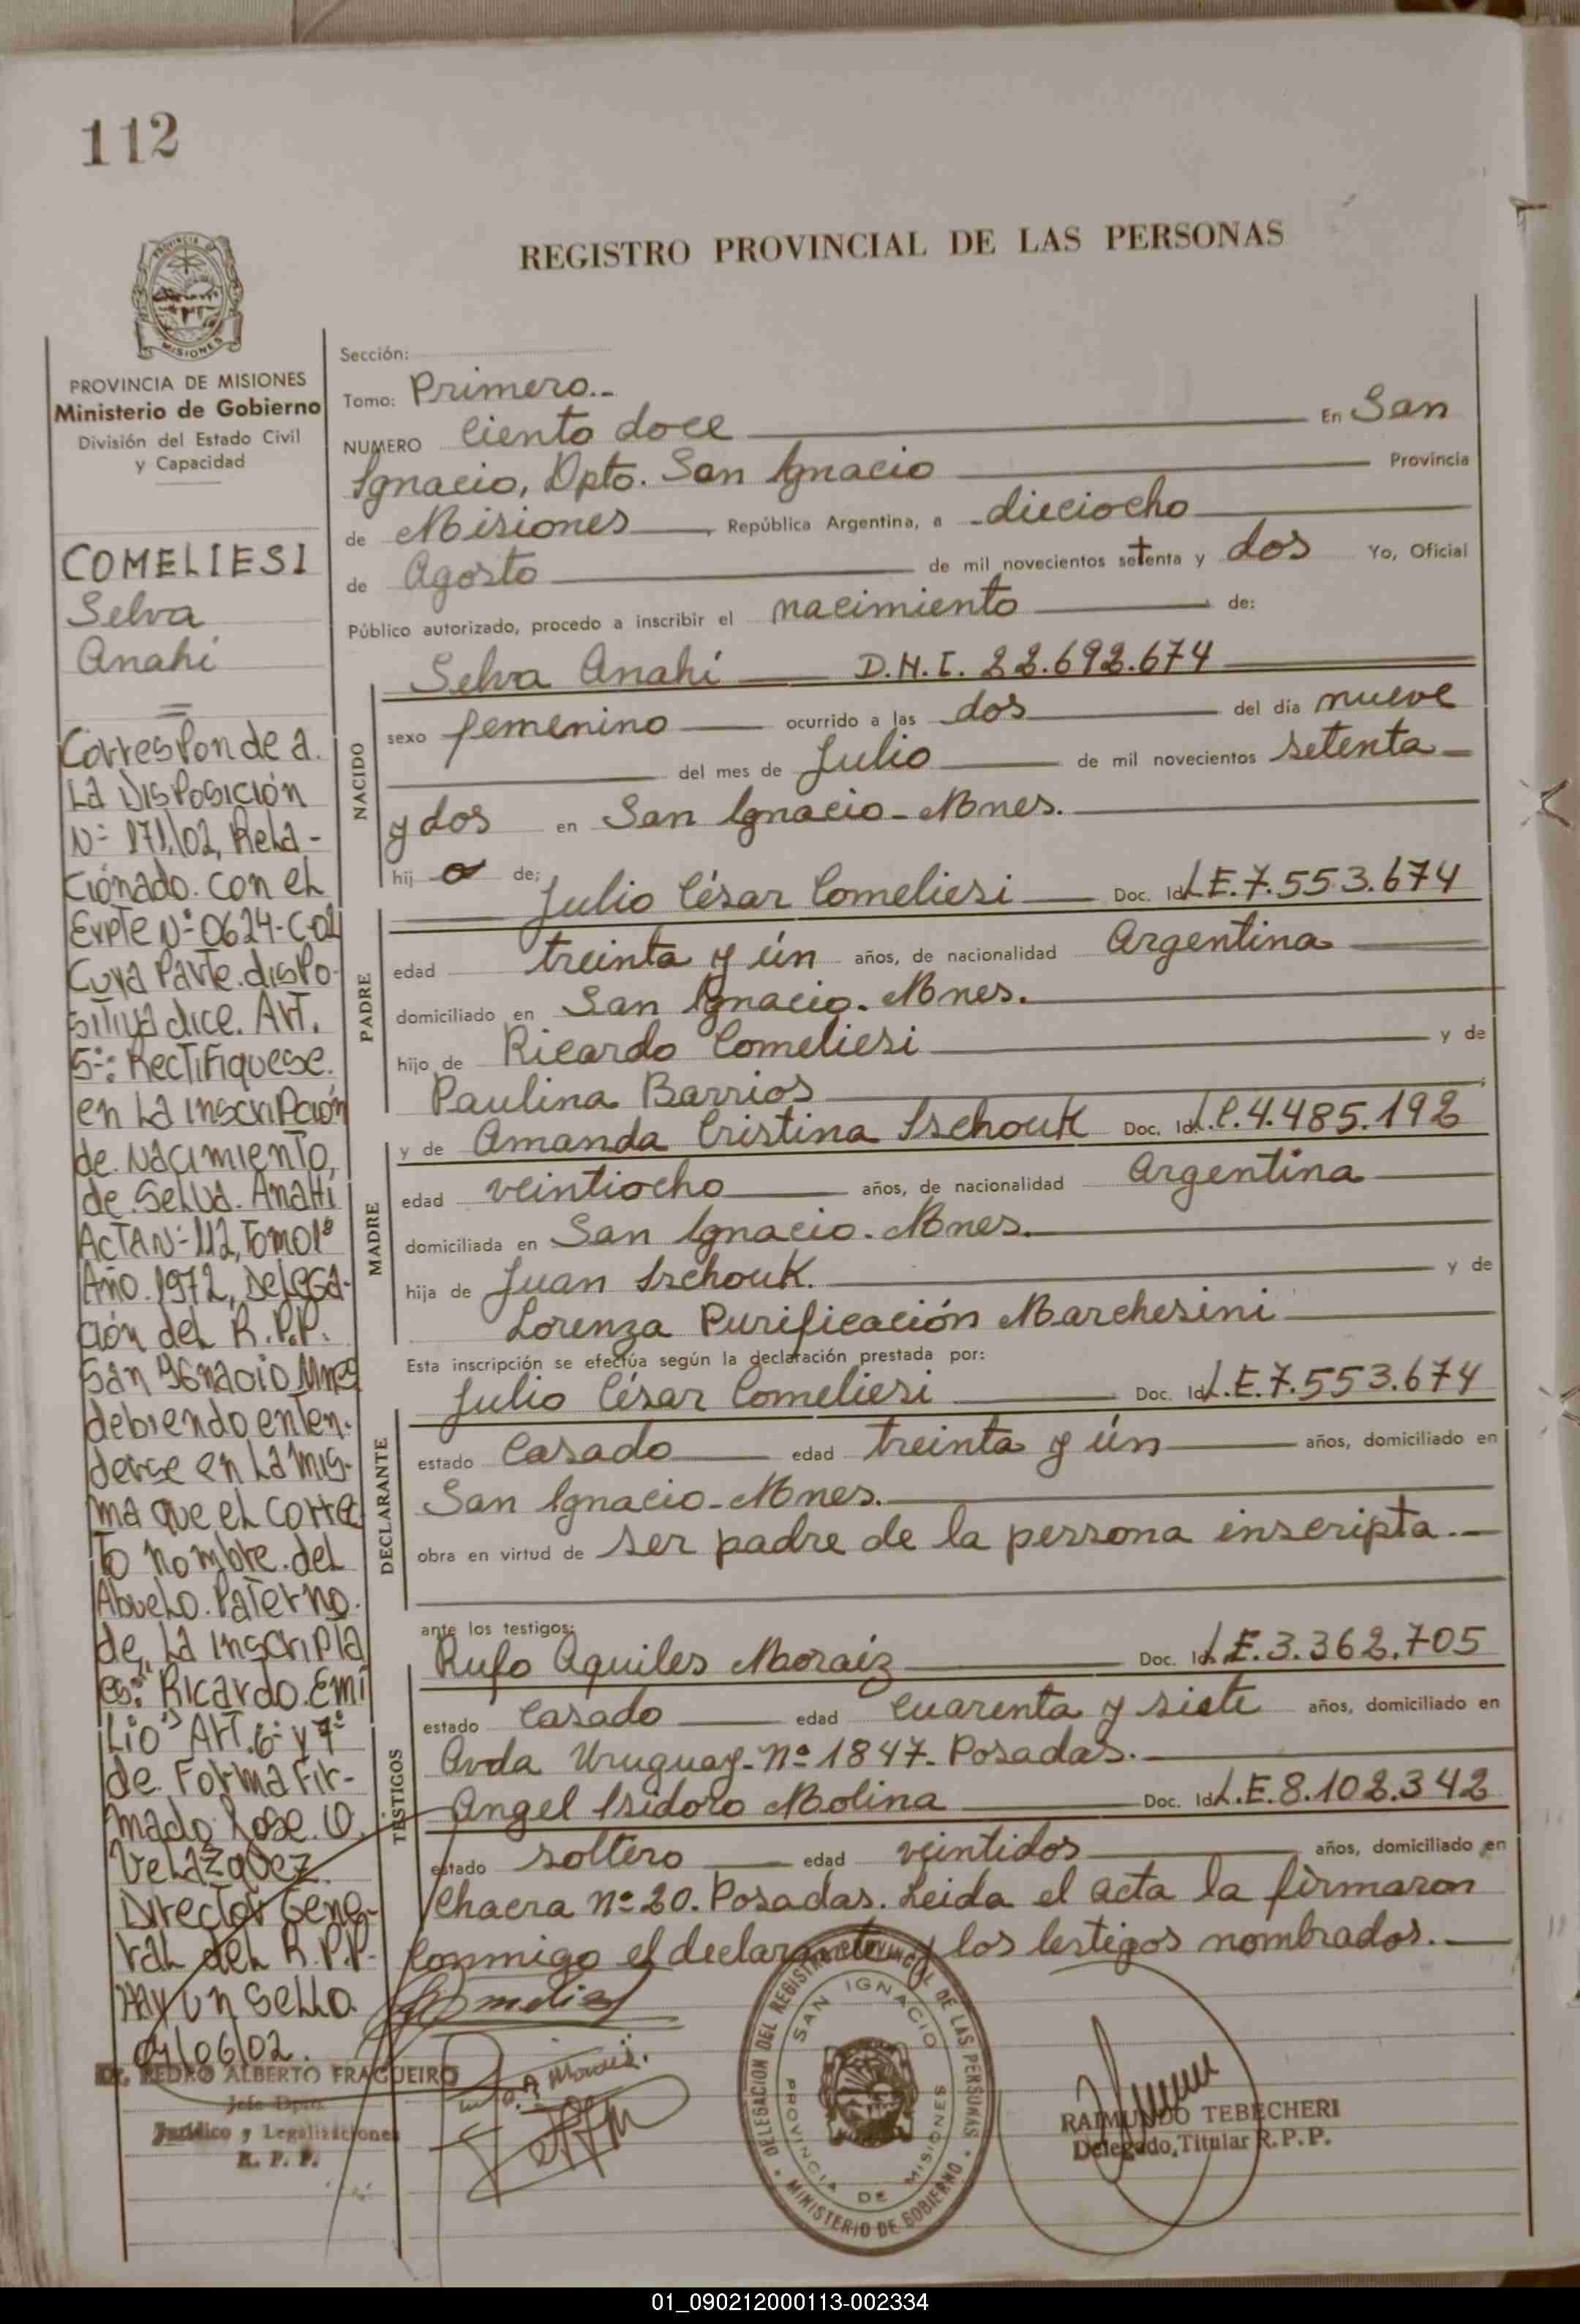 112
REGISTRO PROVINCIAL DE LAS PERSONAS
MISIONES
PROVINCIA DE MISIONES
Ministerio de Gobierno
División del Estado Civil
y Capacidad
COMELIESI
Selva
Anahi
Corresponde a.
La Disposición
N= 171/02, Rela-
cionado. con el
Expte N= 0624-C-02
Cuya Parte. dispo-
sitiva dice. Art.
5=: Rectifiquese.
en La inscripción
de. Nacimiento,
de. Selva. Anahí
Acta N= 112, Tomo 1º
Año. 1972, Delega-
ción del R.P.P.
San Ignacio Mnes
debiendo enten-
derse en La mis-
ma que el corre
to nombre. del
Abuelo. Paterno.
de, La inscripta
es: "Ricardo. Emi
Lio" Art. 6= y 7=
de. Forma Fir-
mado: Jose. O.
Velázquez.
Director Gene-
ral del R.P.P.
Hay un sello.
04/06/02.
Dr. PEDRO ALBERTO FRAGUEIRO
Jefe Dpto.
Jurídico y Legalizaciones
R. P. P.
Sección:
Tomo: Primero.-
NUMERO Ciento doce En San
Ignacio, Dpto. San Ignacio Provincia
de Misiones, República Argentina, a dieciocho
de Agosto de mil novecientos setenta y dos Yo, Oficial
Público autorizado, procedo a inscribir el nacimiento de:
Selva Anahí D.N.I. 22.692.674
NACIDO
sexo femenino ocurrido a las dos del día nueve
del mes de Julio de mil novecientos setenta
y dos en San Ignacio-Mnes.
hij a de:
Julio César Comeliesi Doc. Id. L.E.7.553.674
PADRE
edad treinta y ún años, de nacionalidad Argentina
domiciliado en San Ignacio. Mnes.
hijo de Ricardo Comeliesi y de
Paulina Barrios
y de Amanda Cristina Ischouk Doc. Id. L.C.4.485.192
MADRE
edad veintiocho años, de nacionalidad Argentina
domiciliada en San Ignacio. Mnes.
hija de Juan Ischouk. y de
Lorenza Purificación Marchesini
Esta inscripción se efectúa según la declaración prestada por:
Julio César Comeliesi Doc. Id. L.E.7.553.674
DECLARANTE
estado Casado edad treinta y ún años, domiciliado en
San Ignacio-Mnes.
obra en virtud de ser padre de la persona inscripta.-
ante los testigos:
Rufo Aquiles Moraiz Doc. Id. L.E.3.362.705
TESTIGOS
estado Casado edad Cuarenta y siete años, domiciliado en
Avda Uruguay-nº 1847- Posadas.
Angel Isidoro Molina Doc. Id. L.E.8.102.342
estado soltero edad veintidos años, domiciliado en
Chacra nº 20. Posadas. Leida el acta la firmaron
Conmigo el declarante y los testigos nombrados.
DELEGACION DEL REGISTRO PROVINCIAL DE LAS PERSONAS
SAN IGNACIO
PROVINCIA DE MISIONES
MINISTERIO DE GOBIERNO
RAIMUNDO TEBECHERI
Delegado Titular R. P. P.
01_090212000113-002334